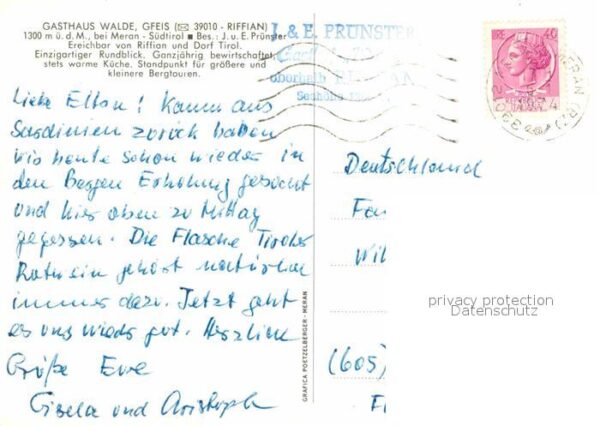 GASTHAUS WALDE, GFEIS (✉ 39010 - RIFFIAN)
1300 m ü. d. M., bei Meran - Südtirol ■ Bes.: J. u. E. Prünster
Ereichbar von Riffian und Dorf Tirol.
Einzigartiger Rundblick. Ganzjährig bewirtschaftet,
stets warme Küche. Standpunkt für größere und
kleinere Bergtouren.
J. & E. PRÜNSTER
oberhalb
LIRE 40
MERAN (BZ)
Liebe Eltern! Kaum aus
Sardinien zurück haben
wir heute schon wieder in
den Bergen Erholung gesucht
und hier oben zu Mittag
gegessen. Die Flasche Tiroler
Rotwein gehört natürlich
immer dazu. Jetzt geht
es uns wieder gut. Herzliche
Grüße Eure
Gisela und Christoph
Deutschland
Fa
Wil
(605)
F
privacy protection
Datenschutz
GRAFICA POETZELBERGER - MERAN